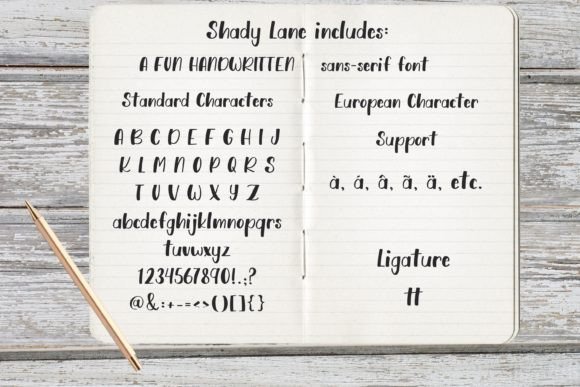 Shady Lane includes:
A FUN HANDWRITTEN sans-serif font
Standard Characters
A B C D E F G H I J
K L M N O P Q R S
T U V W X Y Z
abcdefghijklmnopqrs
tuvwxyz
1234567890!.;?
@&:+-=<>()[]{}
European Character
Support
à, á, â, ã, ä, etc.
Ligature
tt